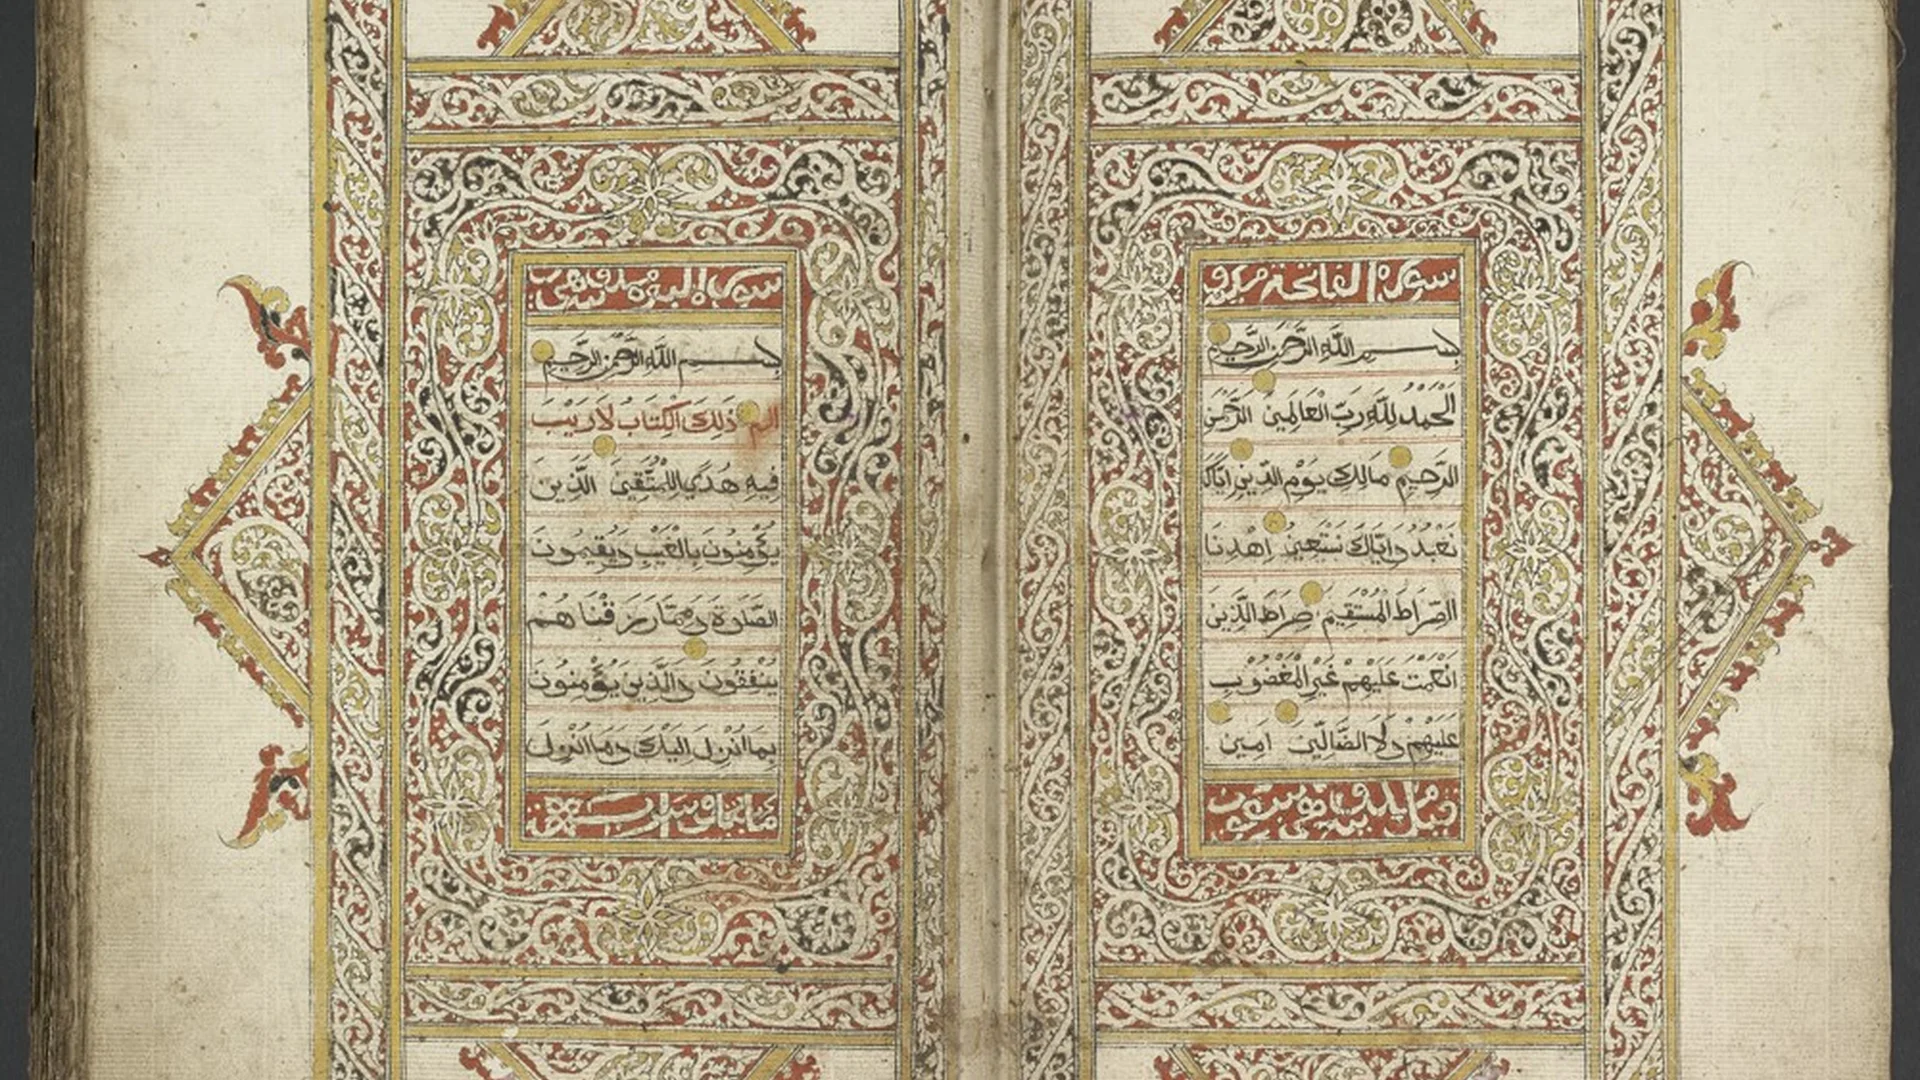 سورة الفاتحة
بِسْمِ اللَّهِ الرَّحْمَنِ الرَّحِيمِ
اَلْحَمْدُ لِلَّهِ رَبِّ الْعَالَمِينَ الرَّحْمَنِ
الرَّحِيمِ مَالِكِ يَوْمِ الدِّينِ اِيَّاكَ
نَعْبُدُ وَاِيَّاكَ نَسْتَعِينُ اِهْدِنَا
الصِّرَاطَ الْمُسْتَقِيمَ صِرَاطَ الَّذِينَ
اَنْعَمْتَ عَلَيْهِمْ غَيْرِ الْمَغْضُوبِ
عَلَيْهِمْ وَلَا الضَّالِّينَ اٰمِينَ
سورة البقرة
بِسْمِ اللَّهِ الرَّحْمَنِ الرَّحِيمِ
الم ذَلِكَ الْكِتَابُ لَا رَيْبَ
فِيهِ هُدًى لِلْمُتَّقِينَ الَّذِينَ
يُؤْمِنُونَ بِالْغَيْبِ وَيُقِيمُونَ
الصَّلَوةَ وَمِمَّا رَزَقْنَاهُمْ
يُنْفِقُونَ وَالَّذِينَ يُؤْمِنُونَ
بِمَا اُنْزِلَ اِلَيْكَ وَمَا اُنْزِلَ